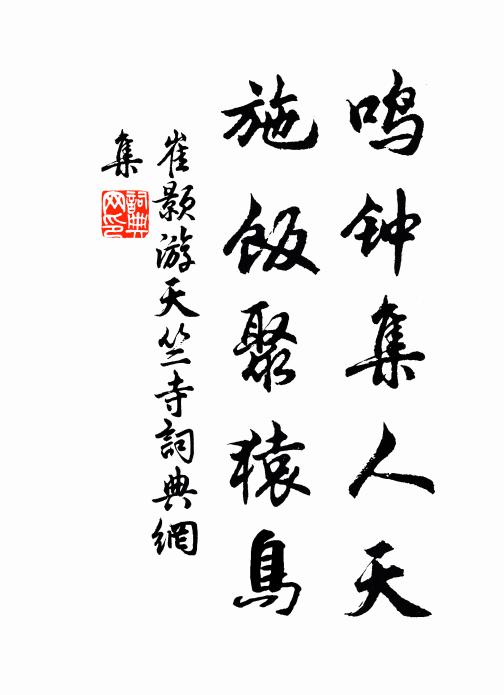 鸣钟集人天
施飯聚猿鳥
崔颢游天竺寺詞典網
集
詞典
网印